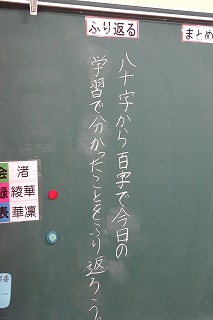 ふり返る
まとめ
八十字から百字で今日の
学習で分かったことをふり返ろう。
会 渚
録 綾華
表 華凜